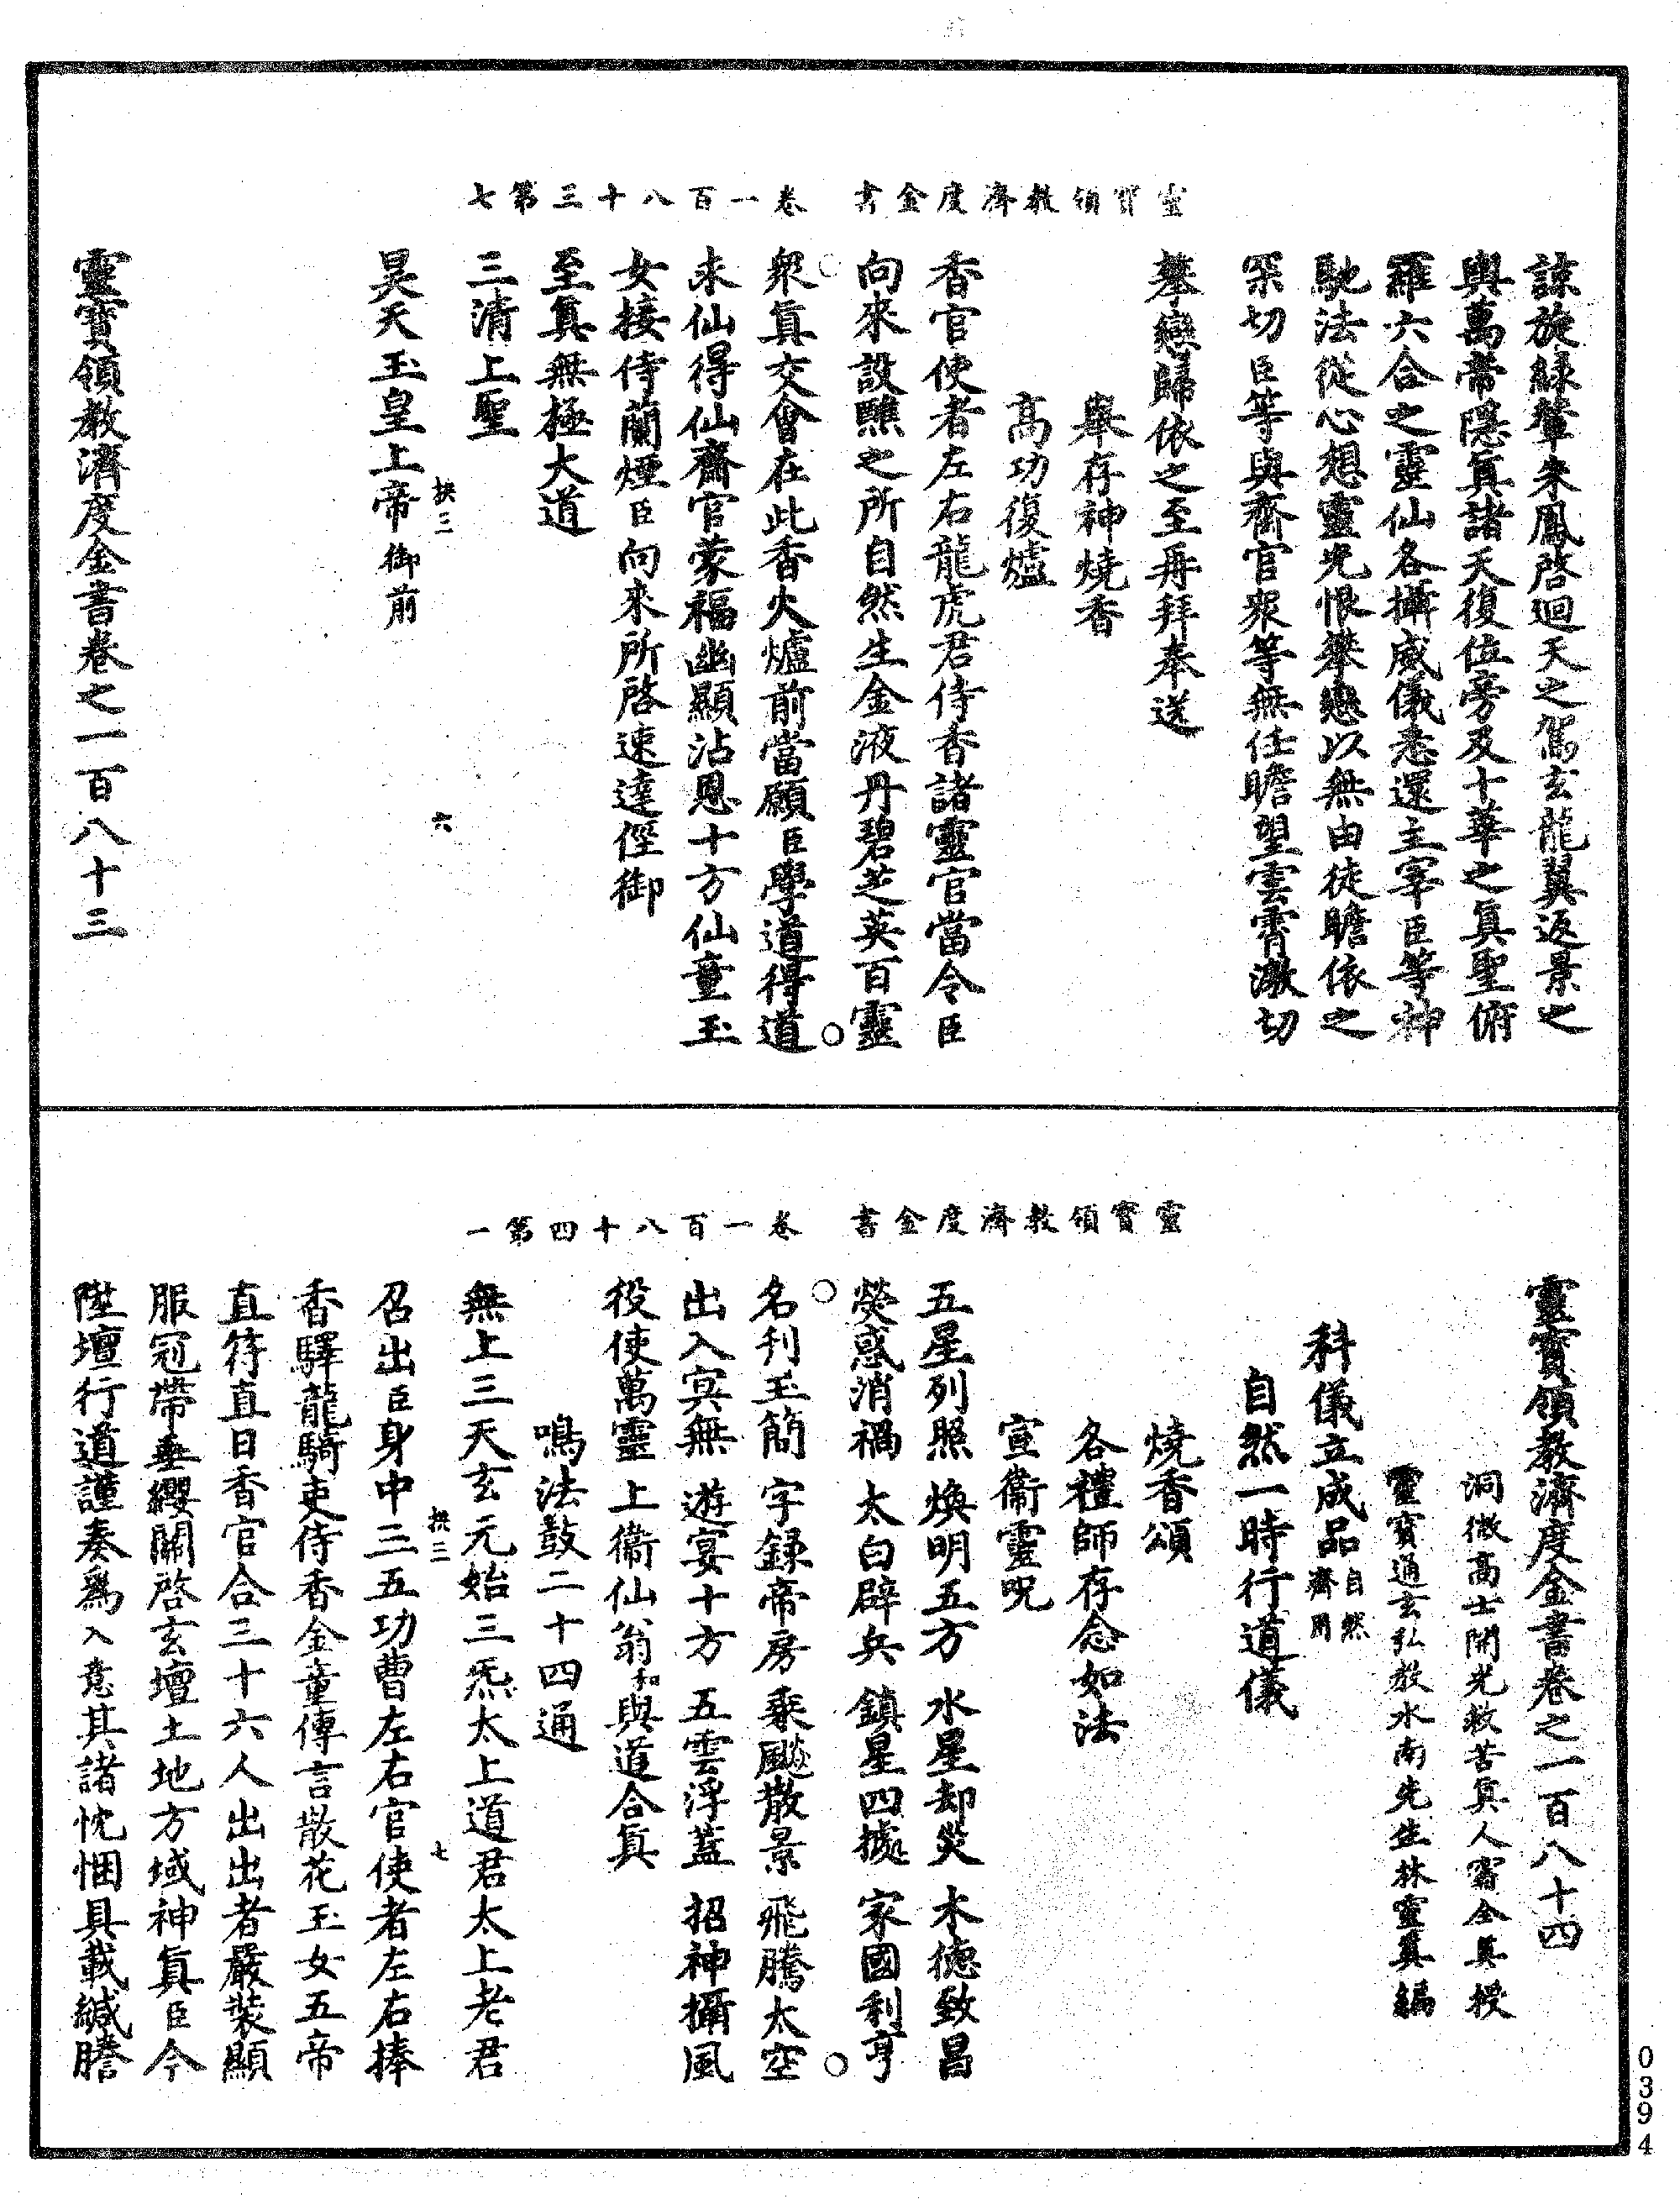 靈寶領教濟度金書　卷一百八十三第七
諒旋綠輦朱鳳啓迴天之駕玄龍翼返景之
輿萬帝隱眞諸天復位旁及十華之眞聖俯
羅六合之靈仙各攝威儀悉還主宰臣等神
馳法從心想靈光恨攀戀以無由徒瞻依之
罙切臣等與齋官衆等無任瞻望雲霄激切
攀戀歸依之至再拜奉送
舉存神燒香
高功復爐
香官使者左右龍虎君侍香諸靈官當令臣
向來設醮之所自然生金液丹碧芝英百靈
衆眞交會在此香火爐前當願臣學道得道
求仙得仙齋官蒙福幽顯沾恩十方仙童玉
女接侍蘭煙臣向來所啓速達俓御
至眞無極大道
三清上聖
拱三　六
昊天玉皇上帝御前
靈寶領教濟度金書卷之一百八十三
靈寶領教濟度金書　卷一百八十四第一
靈寶領教濟度金書卷之一百八十四
洞微高士開光救苦眞人甯全眞授
靈寶通玄弘教水南先生林靈眞編
科儀立成品自然齋用
自然一時行道儀
燒香頌
各禮師存念如法
宣衞靈呪
五星列照　煥明五方　水星却災　木德致昌
熒惑消禍　太白辟兵　鎮星四據　家國利亨
名刋玉簡　字録帝房　乘飈散景　飛騰太空
出入冥無　遊宴十方　五雲浮蓋　招神攝風
役使萬靈　上衞仙翁和與道合眞
鳴法鼓二十四通
無上三天玄元始三炁太上道君太上老君
拱三　七
召出臣身中三五功曹左右官使者左右捧
香驛龍騎吏侍香金童傳言散花玉女五帝
直符直日香官合三十六人出出者嚴裝顯
服冠帶垂纓關啓玄壇土地方域神眞臣今
陞壇行道謹奏爲入意其諸忱悃具載緘謄
0394